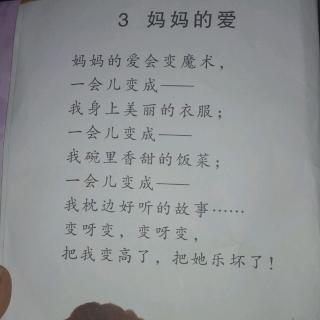 3 妈妈的爱
妈妈的爱会变魔术，
一会儿变成——
我身上美丽的衣服；
一会儿变成——
我碗里香甜的饭菜；
一会儿变成——
我枕边好听的故事……
变呀变，变呀变，
把我变高了，把她乐坏了！